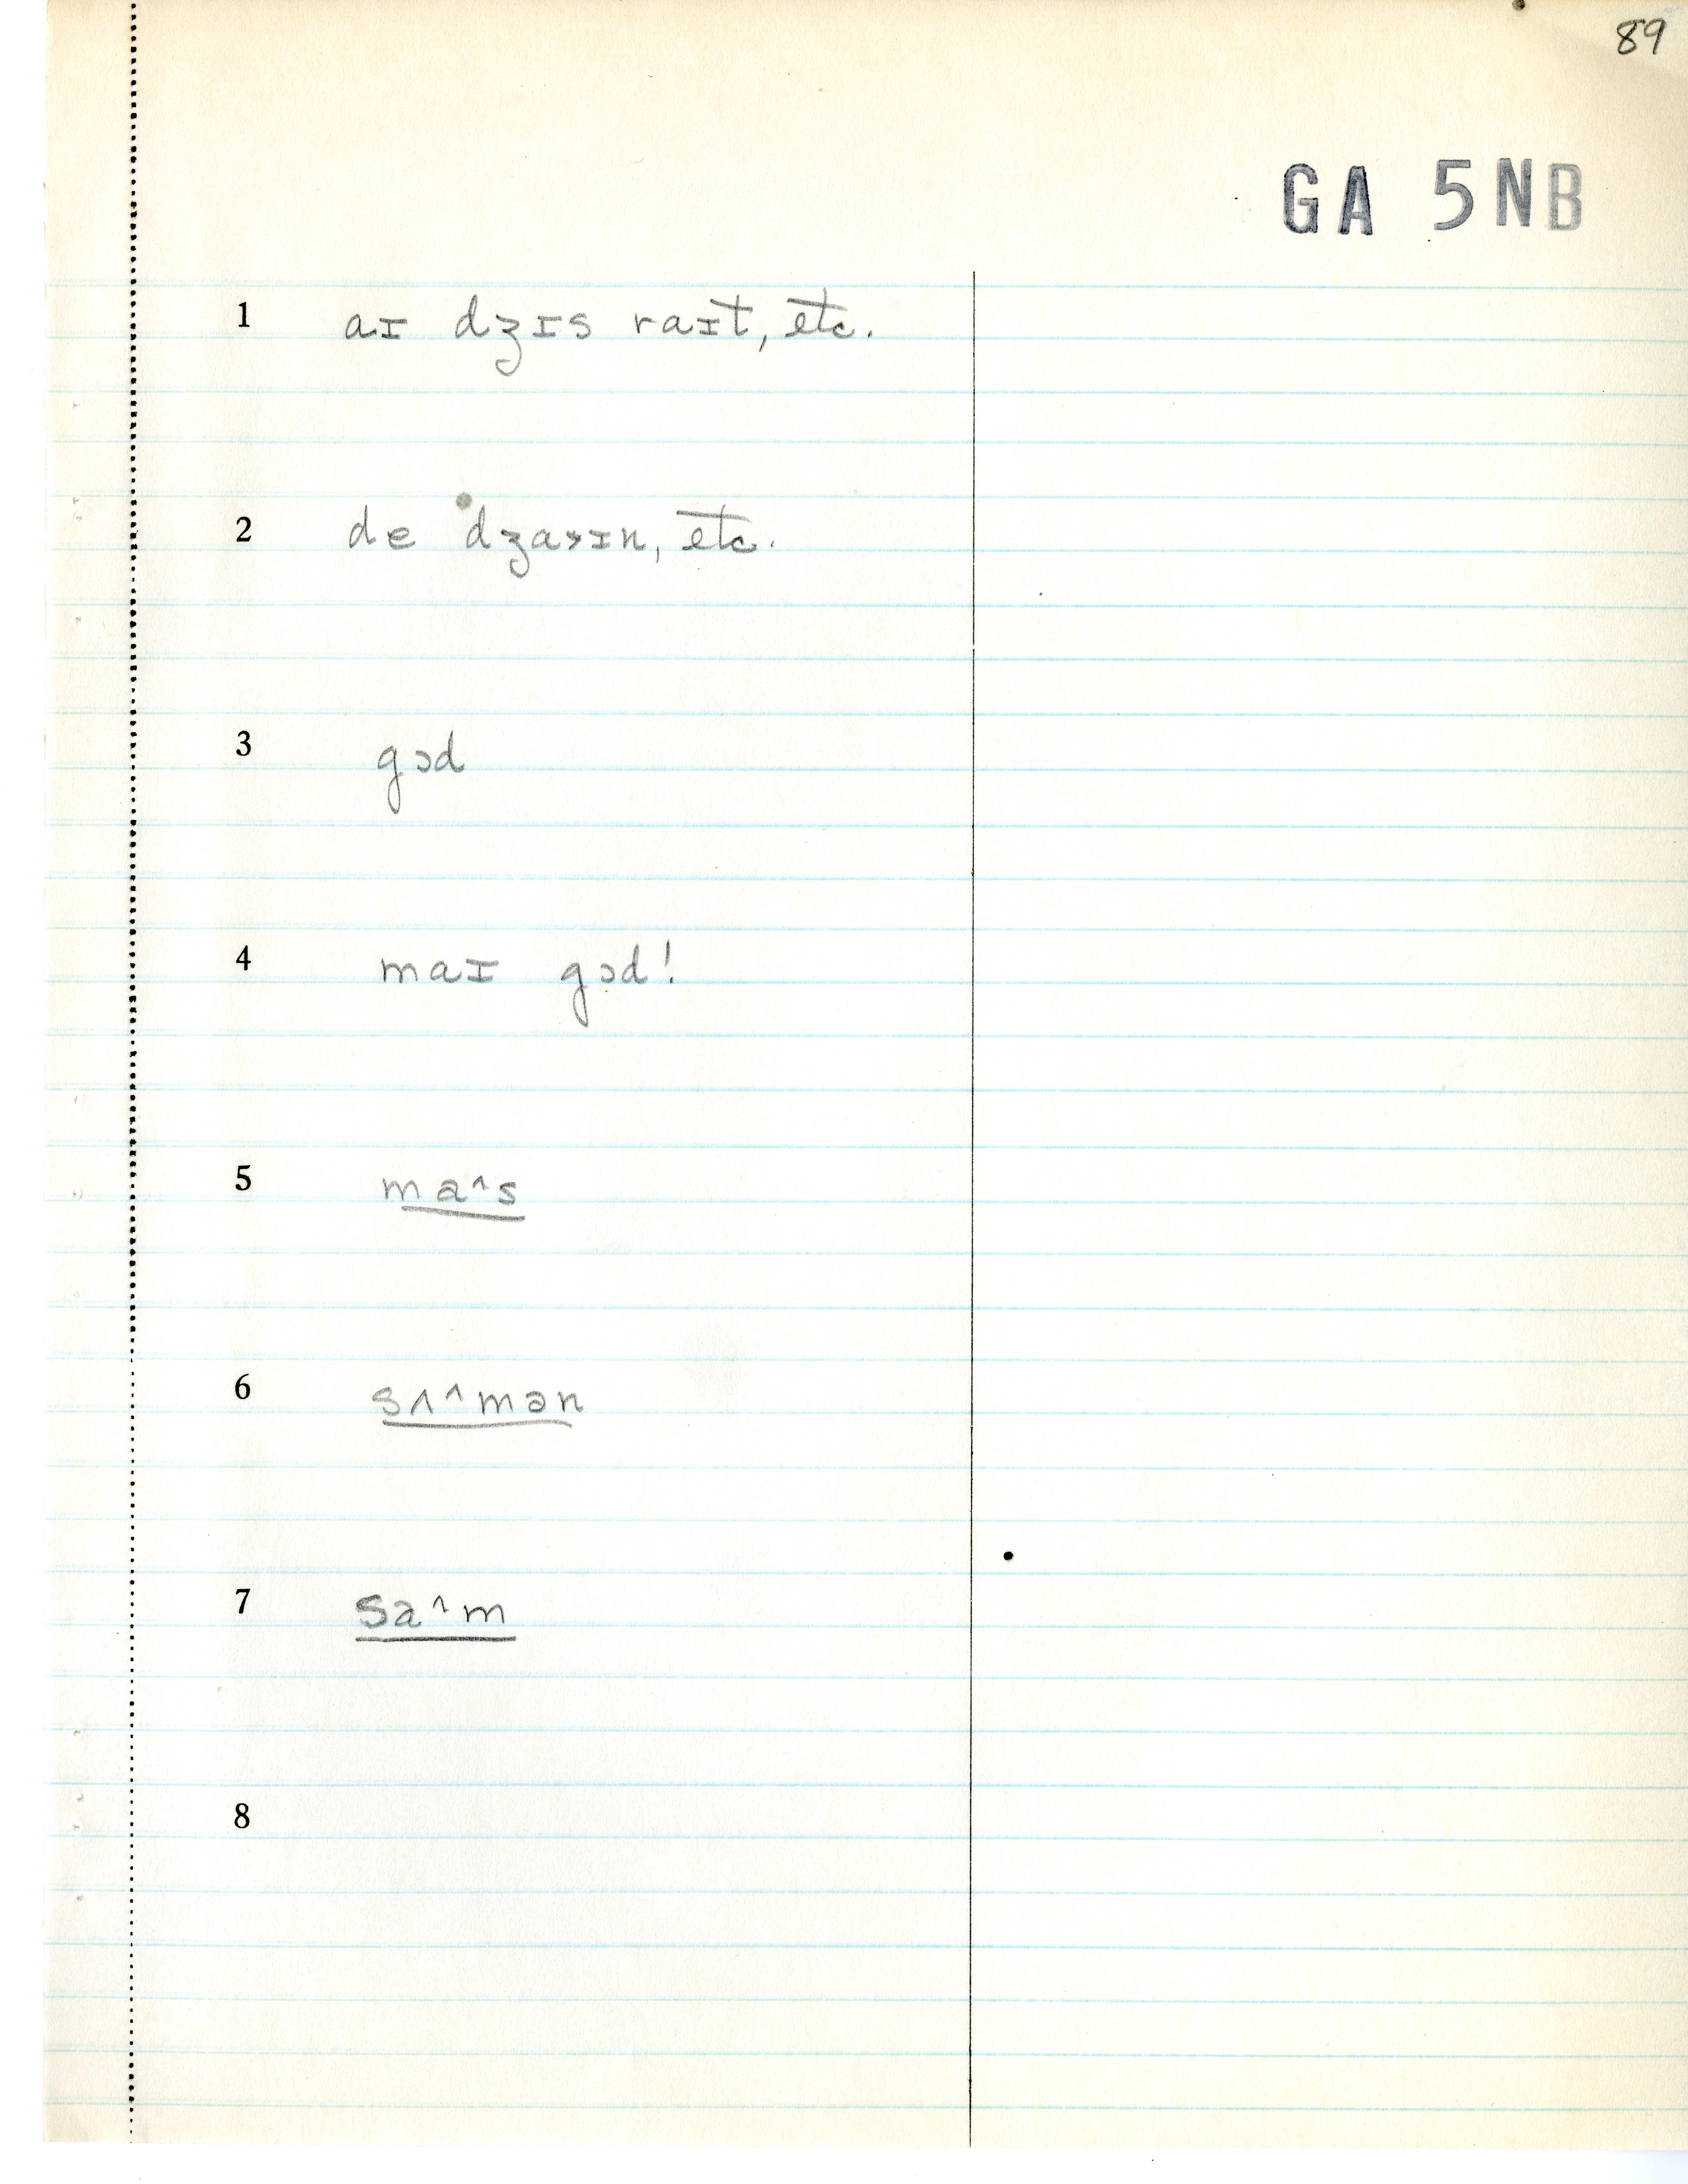 89
GA 5NB
1 aɪ dʒɪs raɪt, etc.
2 de dʒa>ɪn, etc.
3 gɔd
4 maɪ gɔd!
5 ma^s
6 sʌ^mən
7 sa^m
8